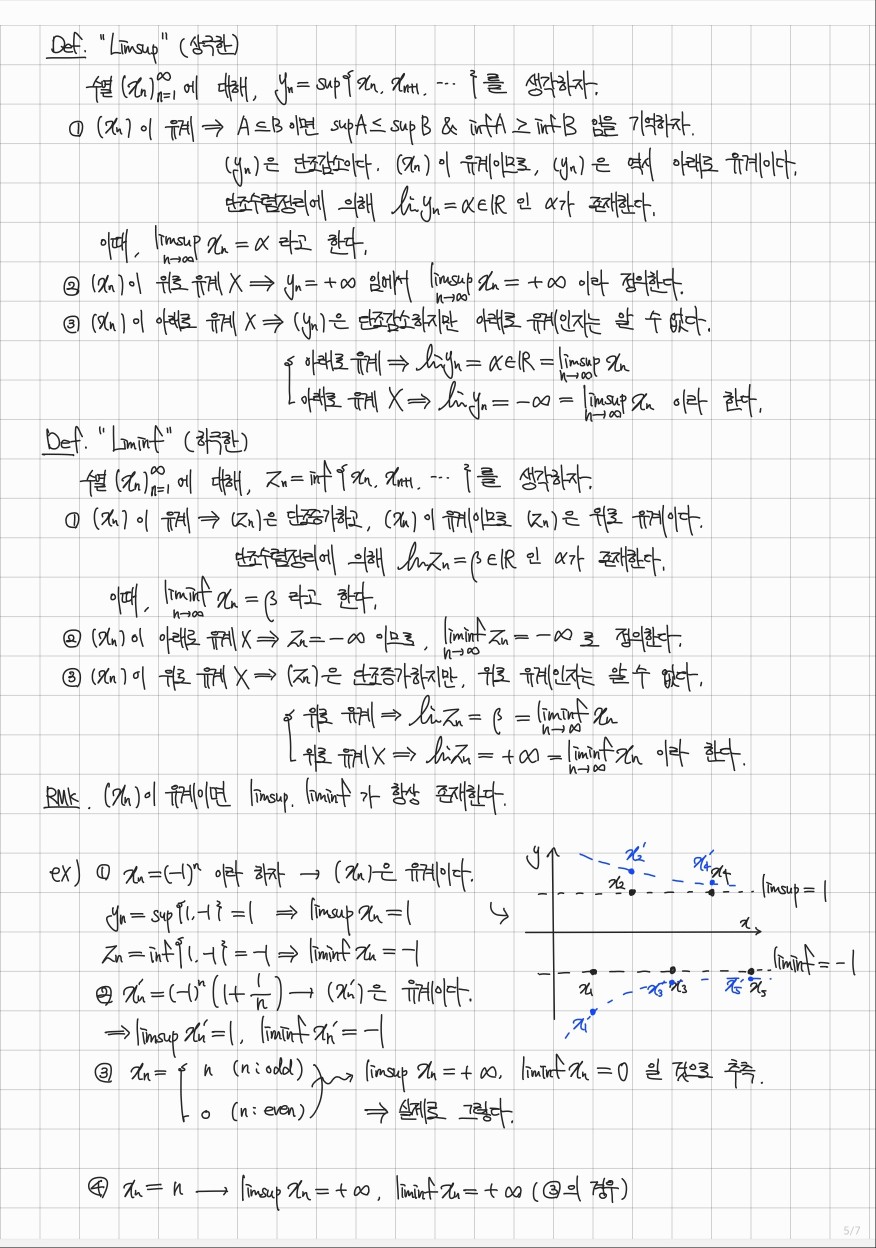 Def. "Limsup" (상극한)
수열 (xₙ)ₙ₌₁^∞ 에 대해, yₙ = sup{xₙ, xₙ₊₁, ⋯ }를 생각하자.
① (xₙ) 이 유계 ⇒ A⊂B이면 supA ≤ supB & infA ≥ infB 임을 기억하자.
(yₙ)은 단조감소이다. (xₙ) 이 유계이므로, (yₙ) 은 역시 아래로 유계이다.
단조수렴정리에 의해 lim yₙ = α∈ℝ 인 α가 존재한다.
이때, limsup_{n→∞} xₙ = α 라고 한다.
② (xₙ)이 위로 유계 X ⇒ yₙ = +∞ 임에서 limsup_{n→∞} xₙ = +∞ 이라 정의한다.
③ (xₙ)이 아래로 유계 X ⇒ (yₙ)은 단조감소하지만 아래로 유계인지는 알 수 없다.
아래로 유계 ⇒ lim yₙ = α∈ℝ = limsup_{n→∞} xₙ
아래로 유계 X ⇒ lim yₙ = -∞ = limsup_{n→∞} xₙ 이라 한다.
Def. "Liminf" (하극한)
수열 (xₙ)ₙ₌₁^∞ 에 대해, Zₙ = inf{xₙ, xₙ₊₁, ⋯ }를 생각하자.
① (xₙ) 이 유계 ⇒ (Zₙ)은 단조증가하고, (xₙ) 이 유계이므로 (Zₙ)은 위로 유계이다.
단조수렴정리에 의해 lim Zₙ = β∈ℝ 인 α가 존재한다.
이때, liminf_{n→∞} xₙ = β 라고 한다.
② (xₙ)이 아래로 유계 X ⇒ Zₙ = -∞ 이므로, liminf_{n→∞} Zₙ = -∞ 로 정의한다.
③ (xₙ)이 위로 유계 X ⇒ (Zₙ)은 단조증가하지만, 위로 유계인지는 알 수 없다.
위로 유계 ⇒ lim Zₙ = β = liminf_{n→∞} xₙ
위로 유계 X ⇒ lim Zₙ = +∞ = liminf_{n→∞} xₙ 이라 한다.
RMK. (xₙ)이 유계이면 limsup, liminf 가 항상 존재한다.
ex) ① xₙ = (-1)ⁿ 이라 하자 → (xₙ)은 유계이다.
yₙ = sup{1, -1} = 1 ⇒ limsup xₙ = 1
Zₙ = inf{1, -1} = -1 ⇒ liminf xₙ = -1
② xₙ′ = (-1)ⁿ(1 + 1/n) → (xₙ′)은 유계이다.
⇒ limsup xₙ′ = 1, liminf xₙ′ = -1
y
x₂′
x₄′
x₂
x₄
limsup = 1
x
liminf = -1
x₁
x₃′ x₃
x₅′ x₅
x₁′
③ xₙ = { n (n : odd) ⇝ limsup xₙ = +∞, liminf xₙ = 0 일 것으로 추측.
0 (n : even) ⇒ 실제로 그렇다.
④ xₙ = n → limsup xₙ = +∞, liminf xₙ = +∞ (③의 경우)
5/7